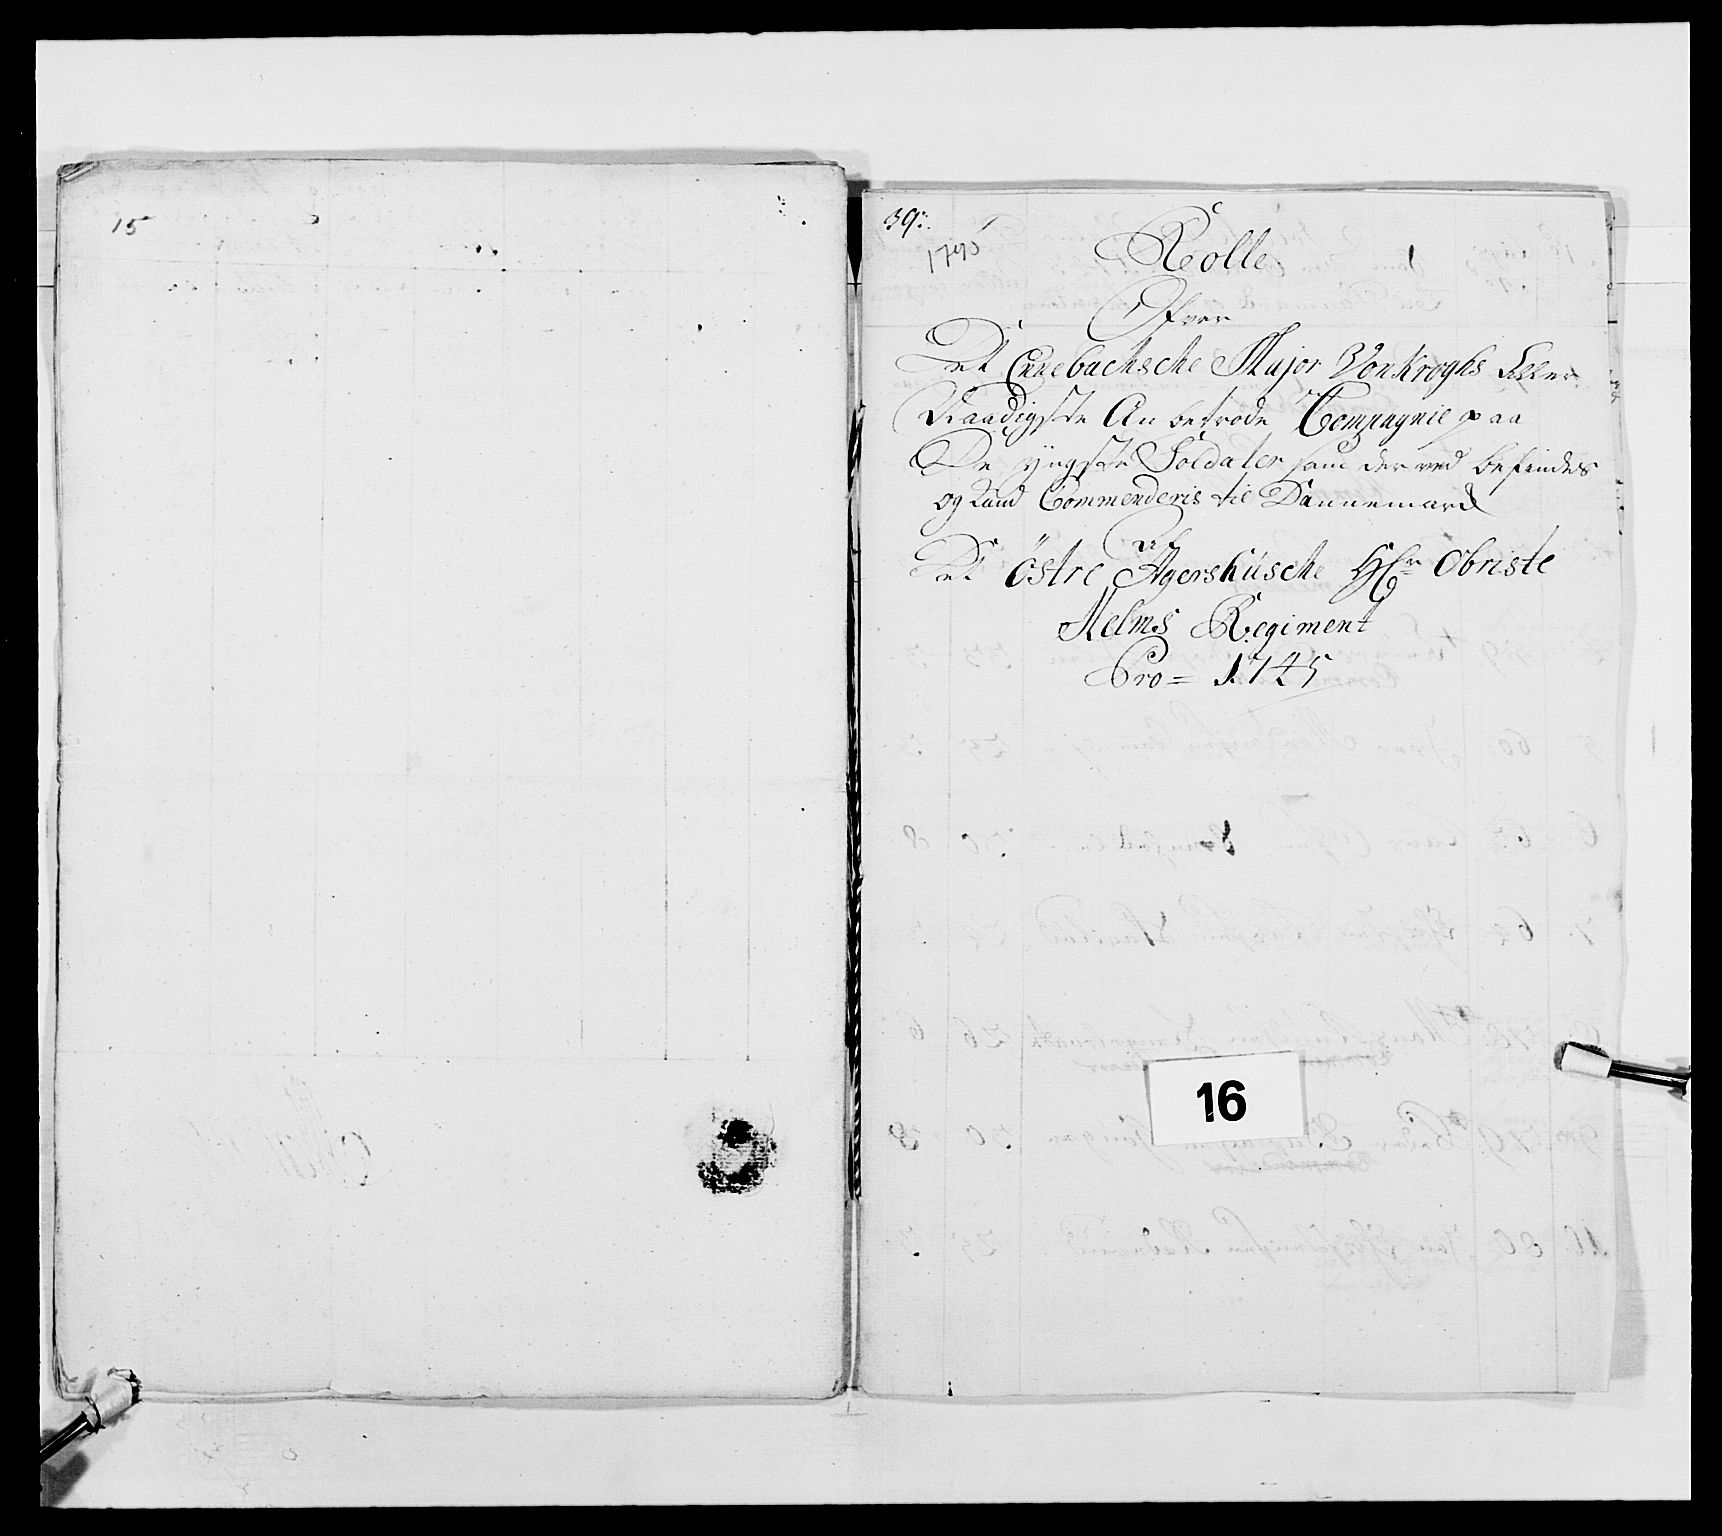 15
39:
1745
Rolle
Ofver
Det Ennebachsche Major Von Kroghs Aller
Naadigste An betrode Compagnie paa
De yngste Soldater som der ved befindes
og kand Commenderis til Dannemarck
Af
Det Östre Agershüsche Hr Obriste
Helms Regiment
Pro = 1745
16